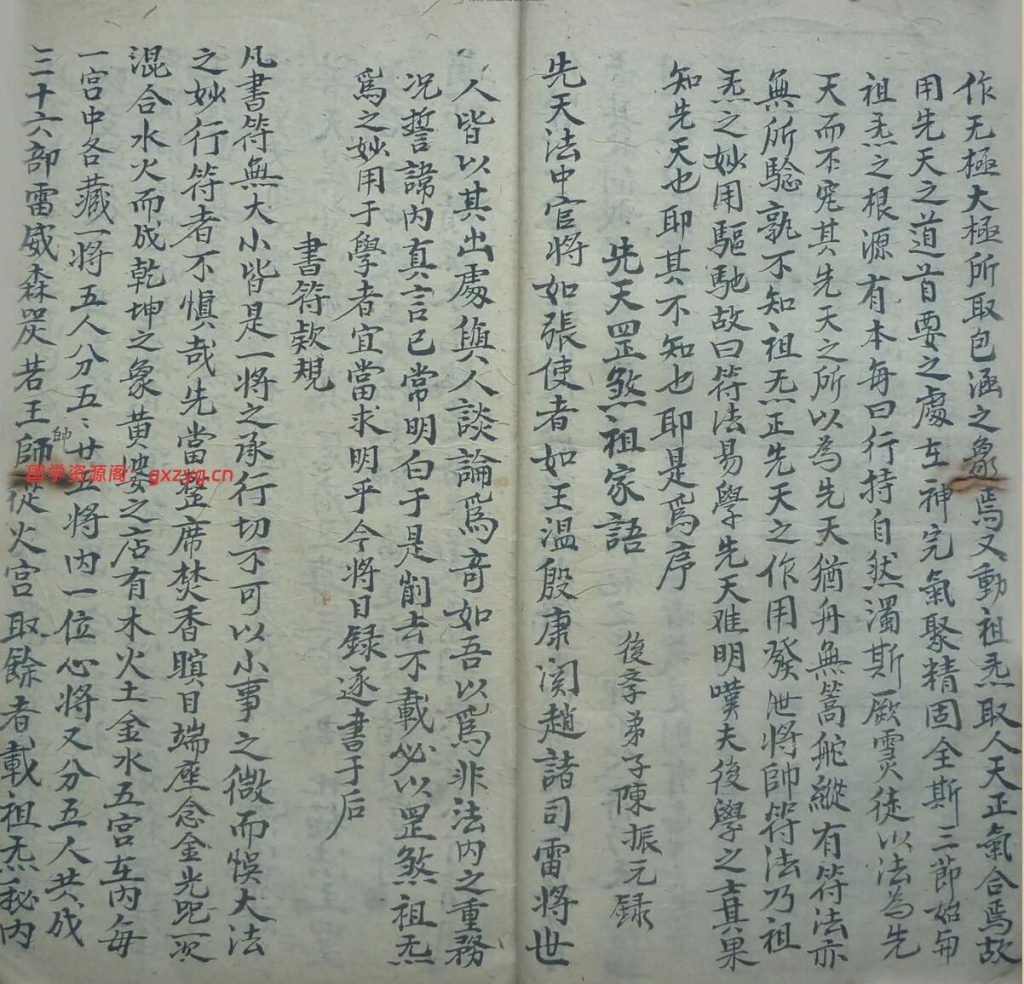 作无極大極所取包涵之象焉又動祖炁取人天正氣合焉故
用先天之道首要之處在神完氣聚精固全斯三節始每
祖炁之根源有本每曰行持自然濁斯厥 徒以法為先
天而不究其先天之所以為先天猶舟無篙舵縱有符法亦
無所驗孰不知祖炁正先天之作用發泄將帥符法乃祖
炁之妙用驅馳故曰符法易學先天难明嘆夫後學之真果
知先天也耶其不知也耶是爲序
後孝弟子陳振元録
先天罡煞祖家語
先天法中官將如張使者如王温殷康関趙諸司雷將世
人皆以其出處與人談論爲竒如吾以爲非法内之重務
况誓諱内真言已常明白于是削去不載必以罡煞祖炁
爲之妙用于學者宜當求明乎今將目録逐書于后
書符欵規
凡書符無大小皆是一將之承行切不可以小事之微而悞大法
之妙行符者不慎哉先當登席焚香瞑目端座念金光咒一次
混合水火而成乾坤之象黄婆之店有木火土金水五宫在内每
一宫中各藏一將五人分五〻廿五將内一位心將又分五人共成
三十六部雷威森 若王師從火宫取餘者載祖炁秘内
帥
國学资源阁 gxzyg.cn